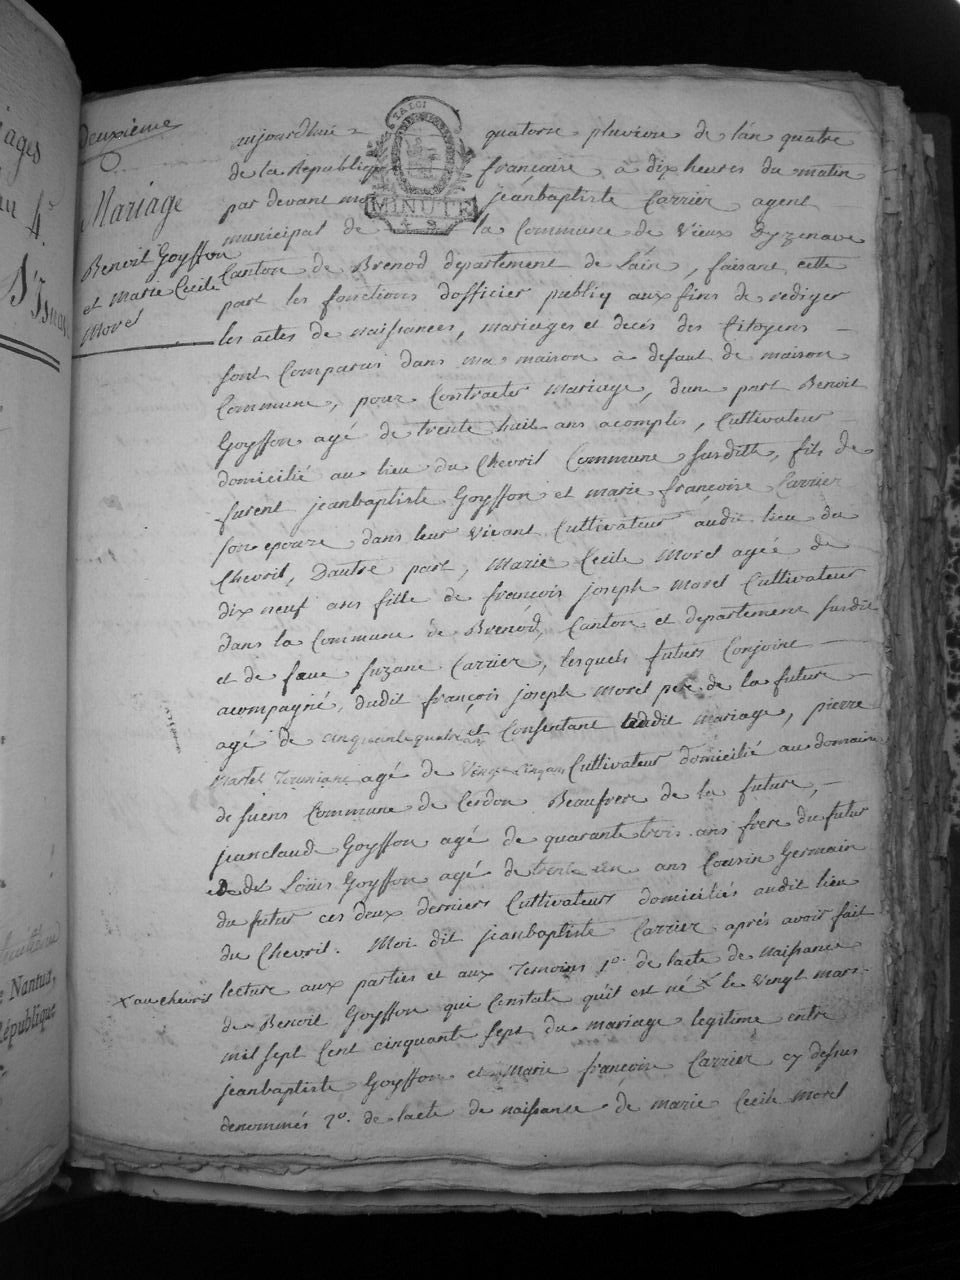 ages
au 4.e
D'Isnav
Nantua,
République
deuxième
Mariage
Benoit Goyffon
et Marie Cecile
Morel
LA LOI
MINUTE
aujourdhui quatorse pluviose de lan quatre
de la Republique françaire à dix heures du matin
par devant moi jeanbaptiste Carrier agent
municipal de la Commune de Vieux Dyzenave
Canton de Brenod departement de lain, faisant cette
part les fonctions dofficier publiq aux fins de rediger
les actes de naissances, mariages et decés des Citoyens
sont Comparus dans ma maison à defaut de maison
Commune, pour Contracter Mariage, dune part Benoit
Goyffon agé de trente huit ans acomplis, Cultivateur
domicilié au lieu du Chevril Commune susditte, fils de
furent jeanbaptiste Goyffon et marie françoise Carrier
son epouze dans leur Vivant Cultivateur audit lieu du
Chevril, Dautre part, Marie Cecile Morel agée de
dix neuf ans fille de françois joseph Morel Cultivateur
dans la Commune de Brenod, Canton et departement susdit
et de feue suzane Carrier, lesquels futurs Conjoint
acompagné, dudit françois joseph Morel pere de la future
agé de cinquante quatre ans et Consentant audit mariage, pierre
Martel agé de Vingt cinq ans Cultivateur domicilié au domaine
de suens Commune de Cerdon Beaufrere de la future,
jeanclaude Goyffon agé de quarante trois ans frere du futur
et de Louis Goyffon agé de trente un ans Cousin Germain
du futur ces deux derniers Cultivateurs domiciliés audit lieu
du Chevril. Moi dit jeanbaptiste Carrier aprés avoir fait
lecture aux parties et aux Temoins 1.o de lacte de naissance
x au chevril
de Benoit Goyffon qui Constate quil est né x le Vingt mars
mil sept Cent cinquante sept du mariage legitime entre
jeanbaptiste Goyffon et Marie françoise Carrier cy dessus
denommés 2.o de lacte de naissance de marie Cecile Morel